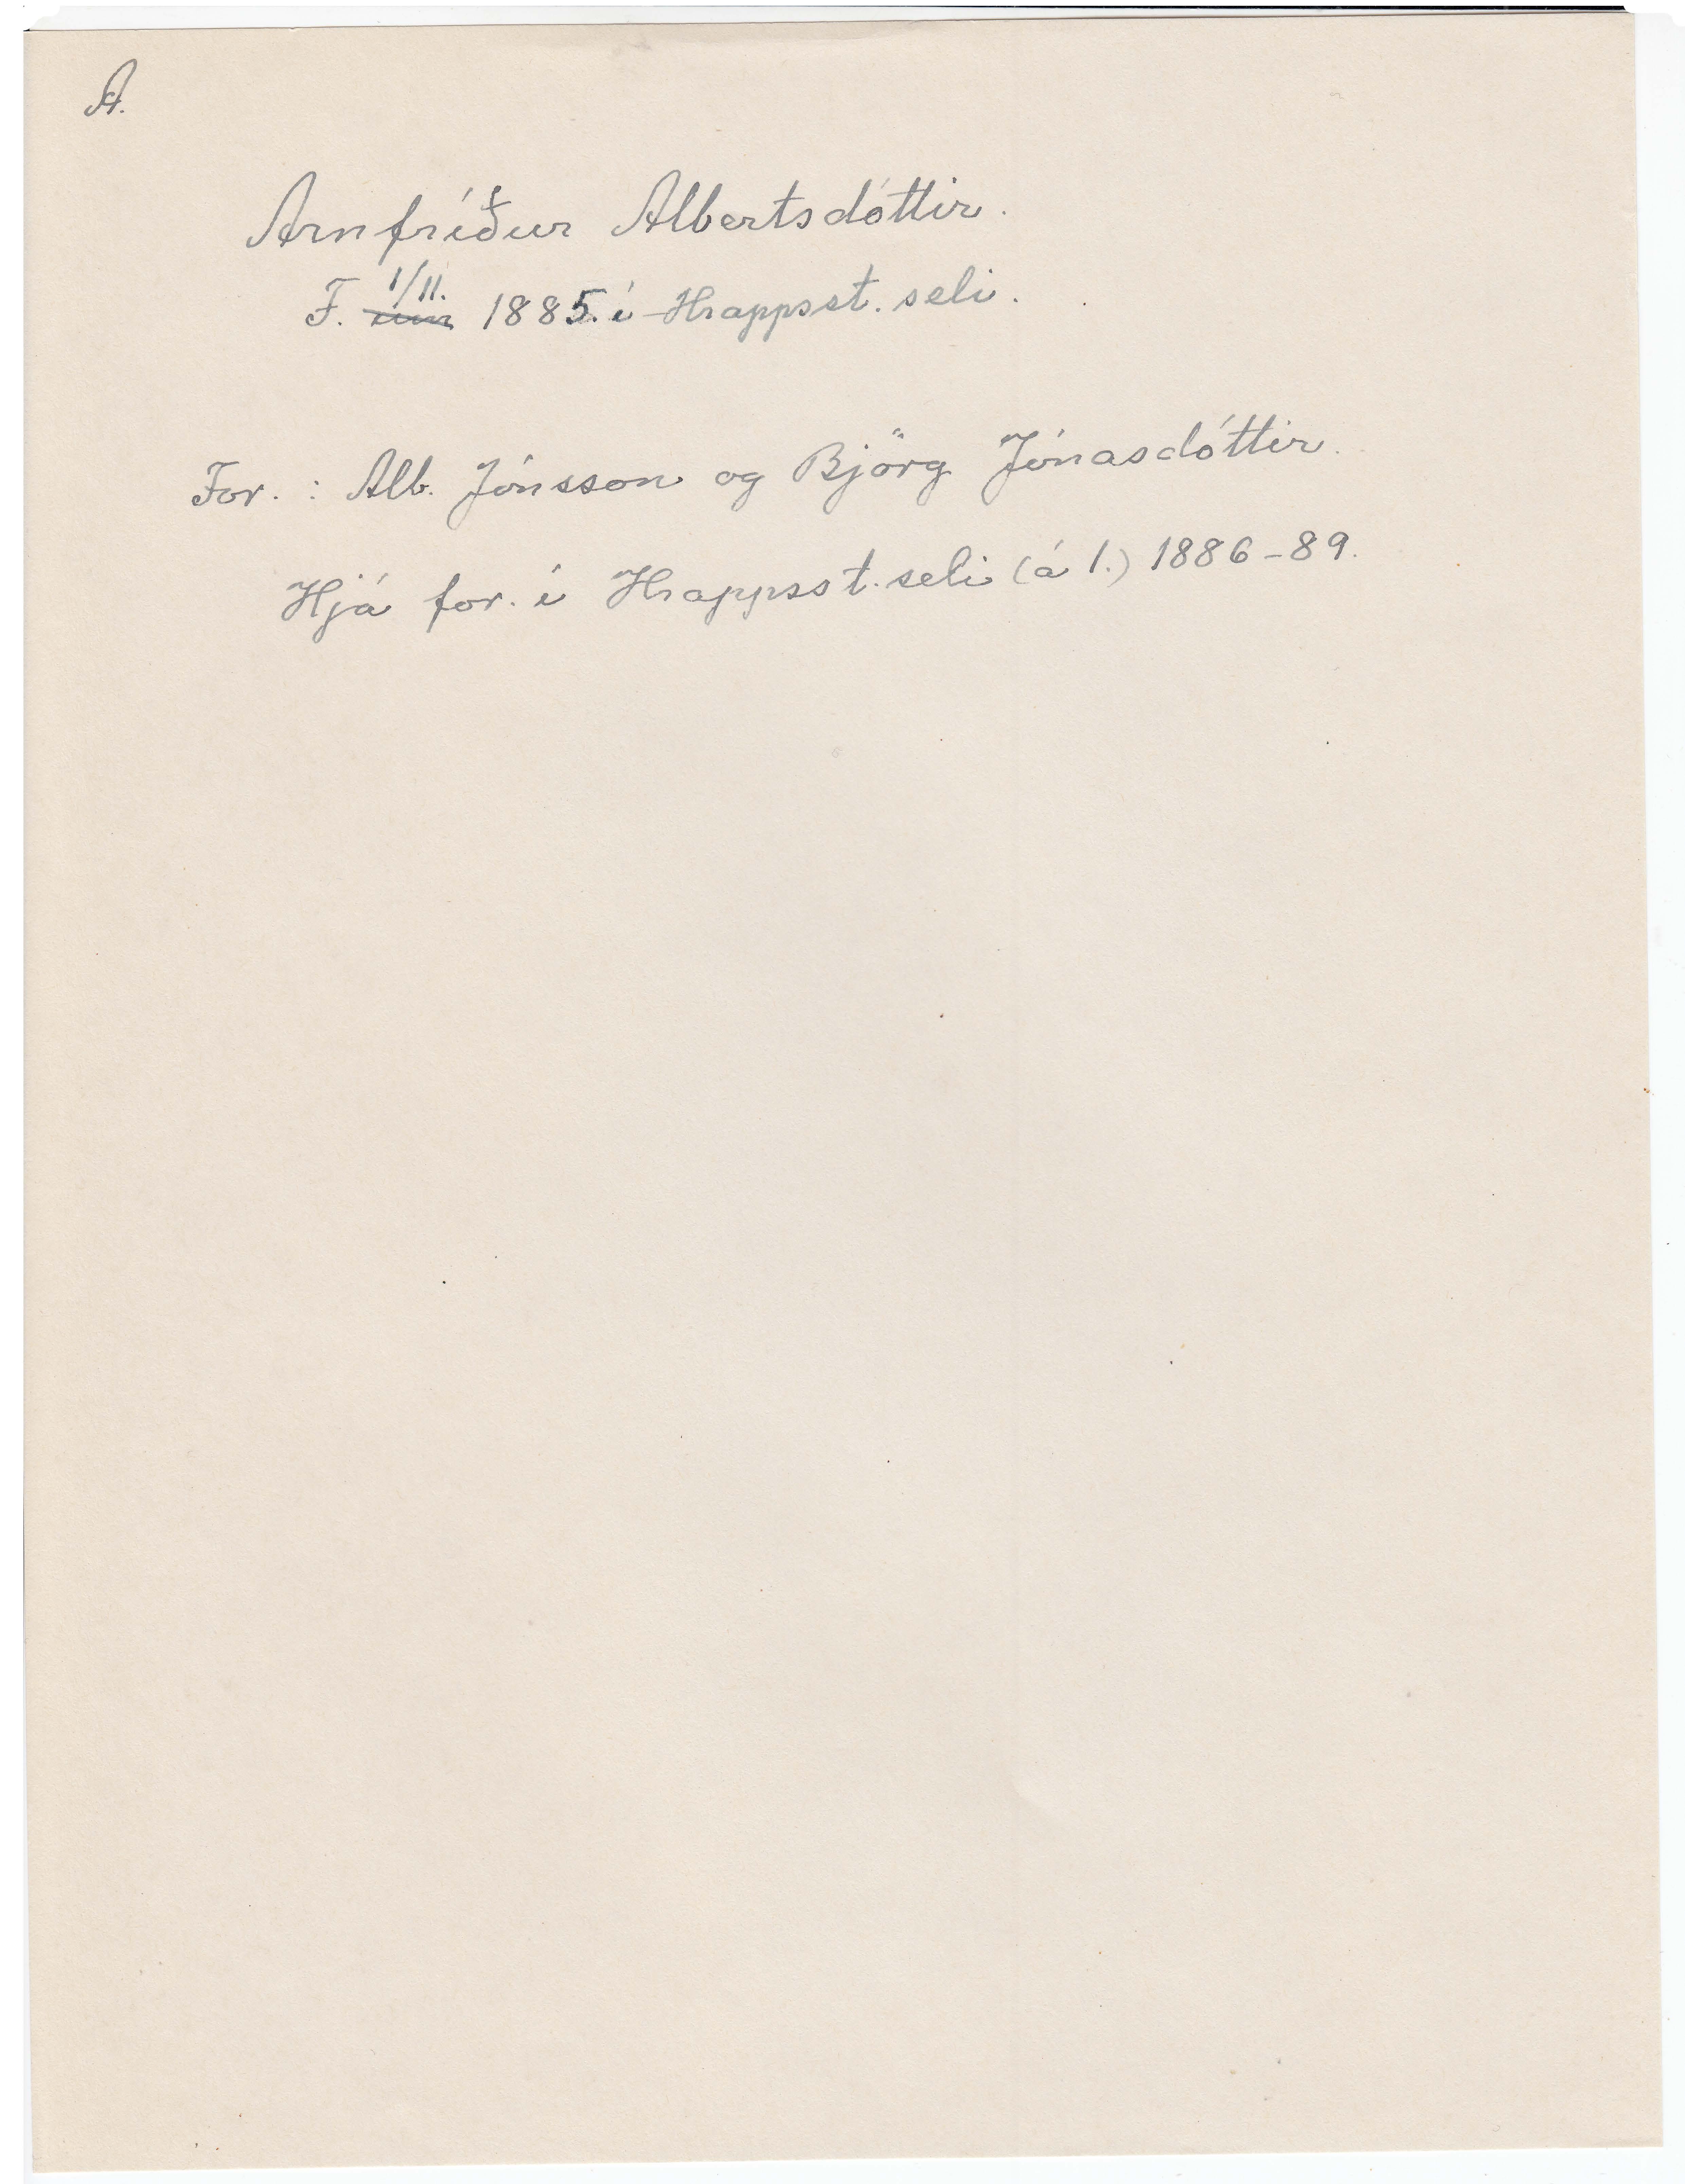 A.
Arnfríður Albertsdóttir.
F. 1/11. 1885. í Hrappsst. seli.
For. : Alb. Jónsson og Björg Jónasdóttir.
Hjá for. í Hrappsst. seli (á 1.) 1886-89.